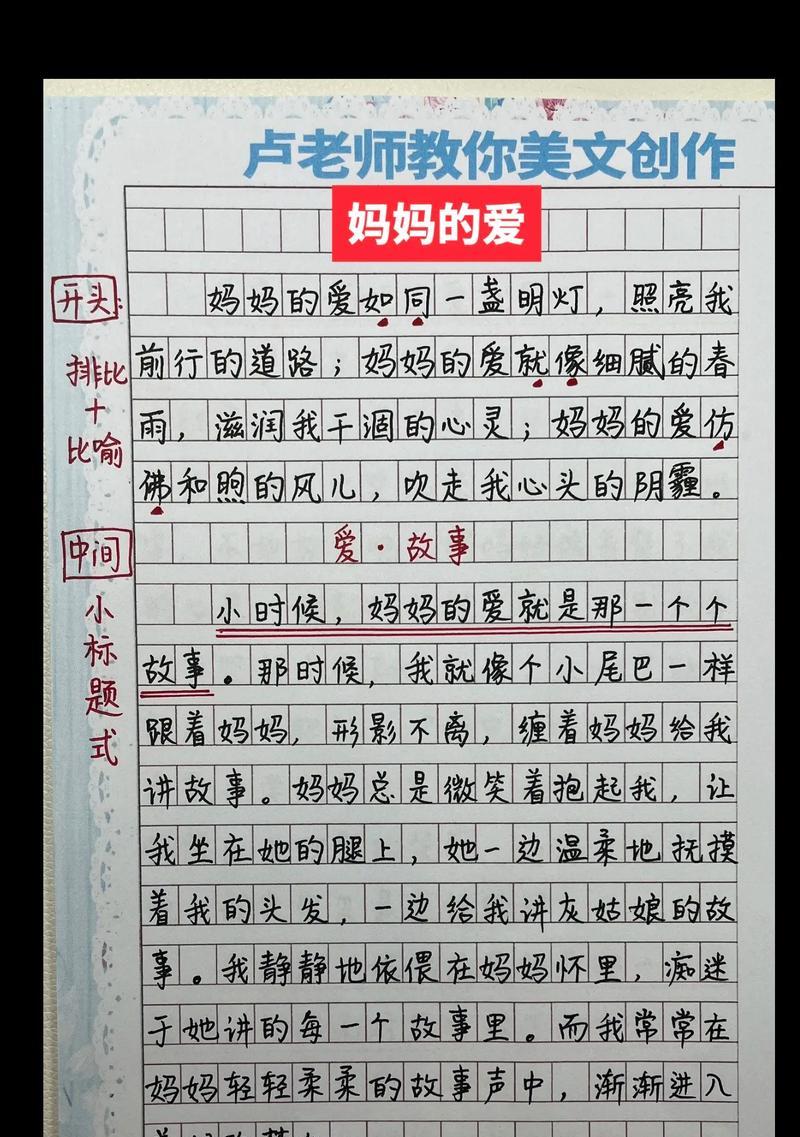 卢老师教你美文创作
妈妈的爱
开头:
排比
+
比喻
妈妈的爱如同一盏明灯，照亮我
前行的道路；妈妈的爱就像细腻的春
雨，滋润我干涸的心灵；妈妈的爱仿
佛和煦的风儿，吹走我心头的阴霾。
爱·故事
中间
小标题式
小时候，妈妈的爱就是那一个个
故事。那时候，我就像个小尾巴一样
跟着妈妈，形影不离，缠着妈妈给我
讲故事。妈妈总是微笑着抱起我，让
我坐在她的腿上，她一边温柔地抚摸
着我的头发，一边给我讲灰姑娘的故
事。我静静地依偎在妈妈怀里，痴迷
于她讲的每一个故事里。而我常常在
妈妈轻轻柔柔的故事声中，渐渐进入